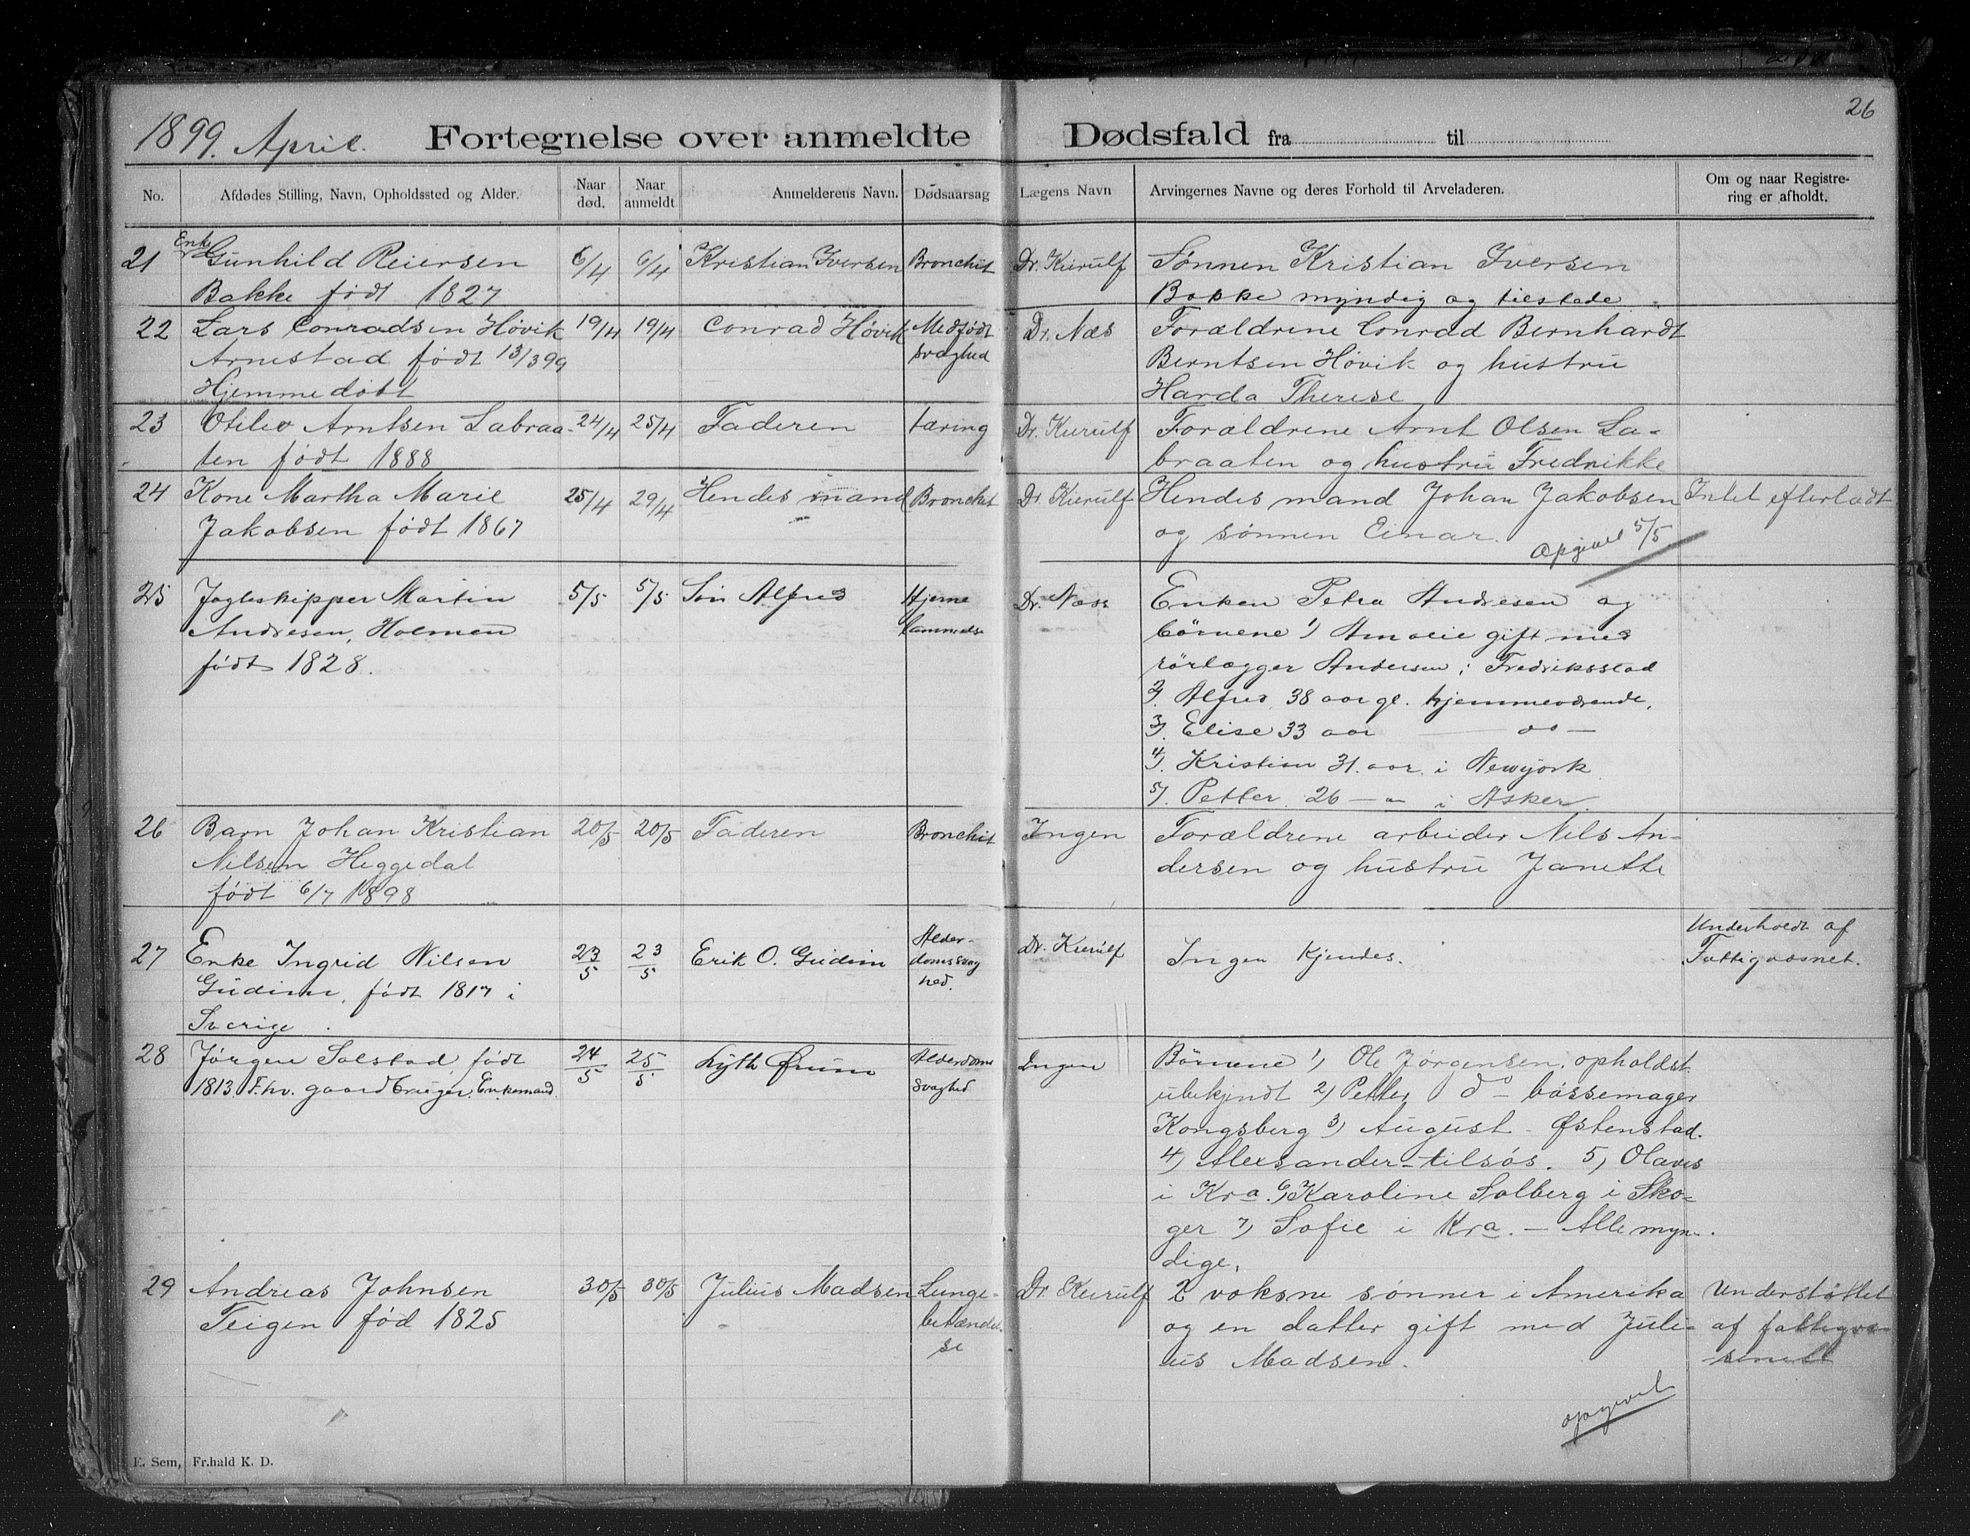 26
1899. April. Fortegnelse over anmeldte Dødsfald fra til
No. Afdødes Stilling, Navn, Opholdssted og Alder. Naar død. Naar anmeldt. Anmelderens Navn. Dødsaarsag Lægens Navn Arvingernes Navne og deres Forhold til Arveladeren. Om og naar Registre-
ring er afholdt.
21 Enke Gunhild Reiersen 6/4 6/4 Kristian Iversen Bronchit Dr. Kierulf Sønnen Kristian Iversen
Bakke født 1827 Bakke myndig og tilstede
22 Lars Conradsen Høvik 19/4 19/4 Conrad Høvik Medfødt Dr. Næs Forældrene Conrad Bernhardt
Arnestad født 13/3 99 svaghed Berntsen Høvik og hustru
Hjemmedøbt Harda Therese
23 Otilev Arntsen Labraa- 24/4 25/4 Faderen tæring Dr. Kierulf Forældrene Arnt Olsen La-
ten født 1888 braaten og hustru Fredrikke
24 Kone Martha Marie 25/4 29/4 Hendes mand Bronchit Dr Kierulf Hendes mand Johan Jakobsen Intet efterladt
Jakobsen født 1867 og sønnen Einar. opgivet 5/5
25 Jagteskipper Martin 5/5 5/5 Søn Alfred Hjerne Dr. Næss Enken Petra Andresen og
Andresen, Holmen lammelse børnene 1) Amalie gift med
født 1828. rørlægger Andersen i Fredriksstad
2). Alfred 38 aar gl. hjemmeværende,
3). Elise 33 aar — do —
4). Kristian 31. aar i Newyork
5). Petter 26 — " i Asker.
26 Barn Johan Kristian 20/5 20/5 Faderen Bronchit Ingen Forældrene arbeider Nils An-
Nilsen Heggedal dersen og hustru Janette
født 6/7 1898
27 Enke Ingrid Nilsen 23/5 23/5 Erik O. Gudim Alder- Dr. Kierulf Ingen Kjendes. Underholdt af
Gudim, født 1817 i domssvag Fattigvæsnet.
Sverige. hed.
28 Jørgen Solstad, født 24/5 25/5 Lyth Ørum Alderdoms Ingen Børnene 1) Ole Jørgensen, opholdst
1813. Fhv. gaardbruger. Enkemand. svaghed ubekjendt 2) Petter do — bøssemager
Kongsberg 3) August - Østenstad.
4) Alexsander - tilsøs. 5) Olaves
i Kra. 6) Karoline Solberg i Sko-
ger 7) Sofie i Kra. — Alle myn-
dige.
29 Andreas Johnsen 30/5 30/5 Julius Madsen Lunge- Dr. Kierulf 2 voksne sønner i Amerika Understøttet
Teigen fød 1825 betændel- og en datter gift med Juli- af fattigvæ-
se us Madsen. senet
opgivet
E. Sem, Fr.hald K. D.